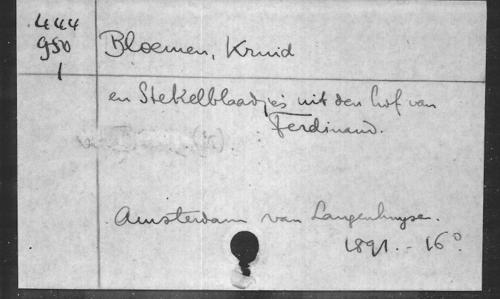 444
950
1
Bloemen, Kruid
en Stekelblaadjes uit den hof van
Ferdinand.
Amsterdam van Langenhuysen.
1891. - 16°.